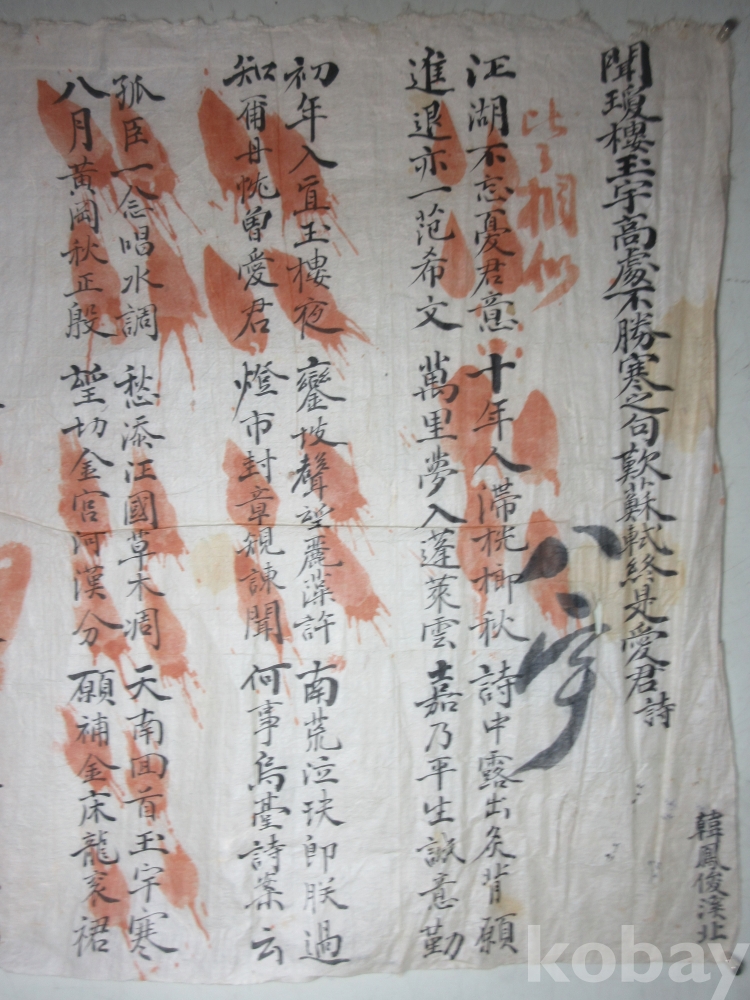 韓鳳俊溪北
聞瓊樓玉宇高處不勝寒之句歎蘇軾終是愛君詩
比々相似
江湖不忘憂君意 十年人滯桄榔秋 詩中露出炙背願
進退亦一范希文 萬里夢入蓬萊雲 嘉乃平生誠意勤
初年入直玉樓夜 鑾坡聲望麗藻許 南荒泣玦郎朕過
知爾丹忱曾愛君 燈市封章規諫聞 何事烏臺詩案云
孤臣一念唱水調 愁添江國草木凋 天南回首玉宇寒
八月黃岡秋正殷 望切金宮河漢分 願補金床龍袞裙
kobay